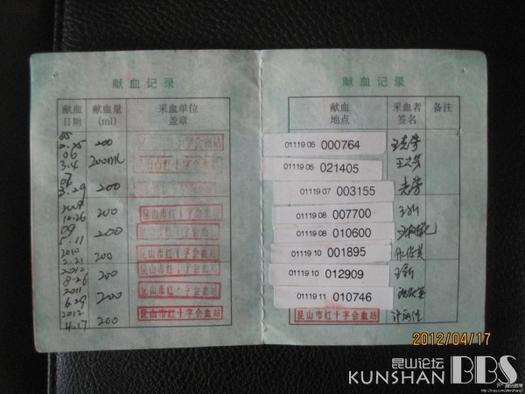 献血记录
献血日期 献血量(ml) 采血单位盖章
05
2.25 200
06
3.4 200ml
07
3.29 200
2008
10.26 200 昆山市红十字会血站
09
5.11 200 昆山市红十字会血站
2010
2.21 200 昆山市红十字会血站
8.26 200 昆山市红十字会血站
2011
6.29 200 昆山市红十字会血站
2012
4.17 200 昆山市红十字会血站
献血记录
献血地点 采血者签名 备注
01119 05 000764
01119 05 021405
01119 07 003155
01119 08 007700
01119 08 010600
01119 10 001895
01119 10 012909
01119 11 010746
昆山市红十字会血站
2012/04/17
昆山论坛
KUNSHAN BBS